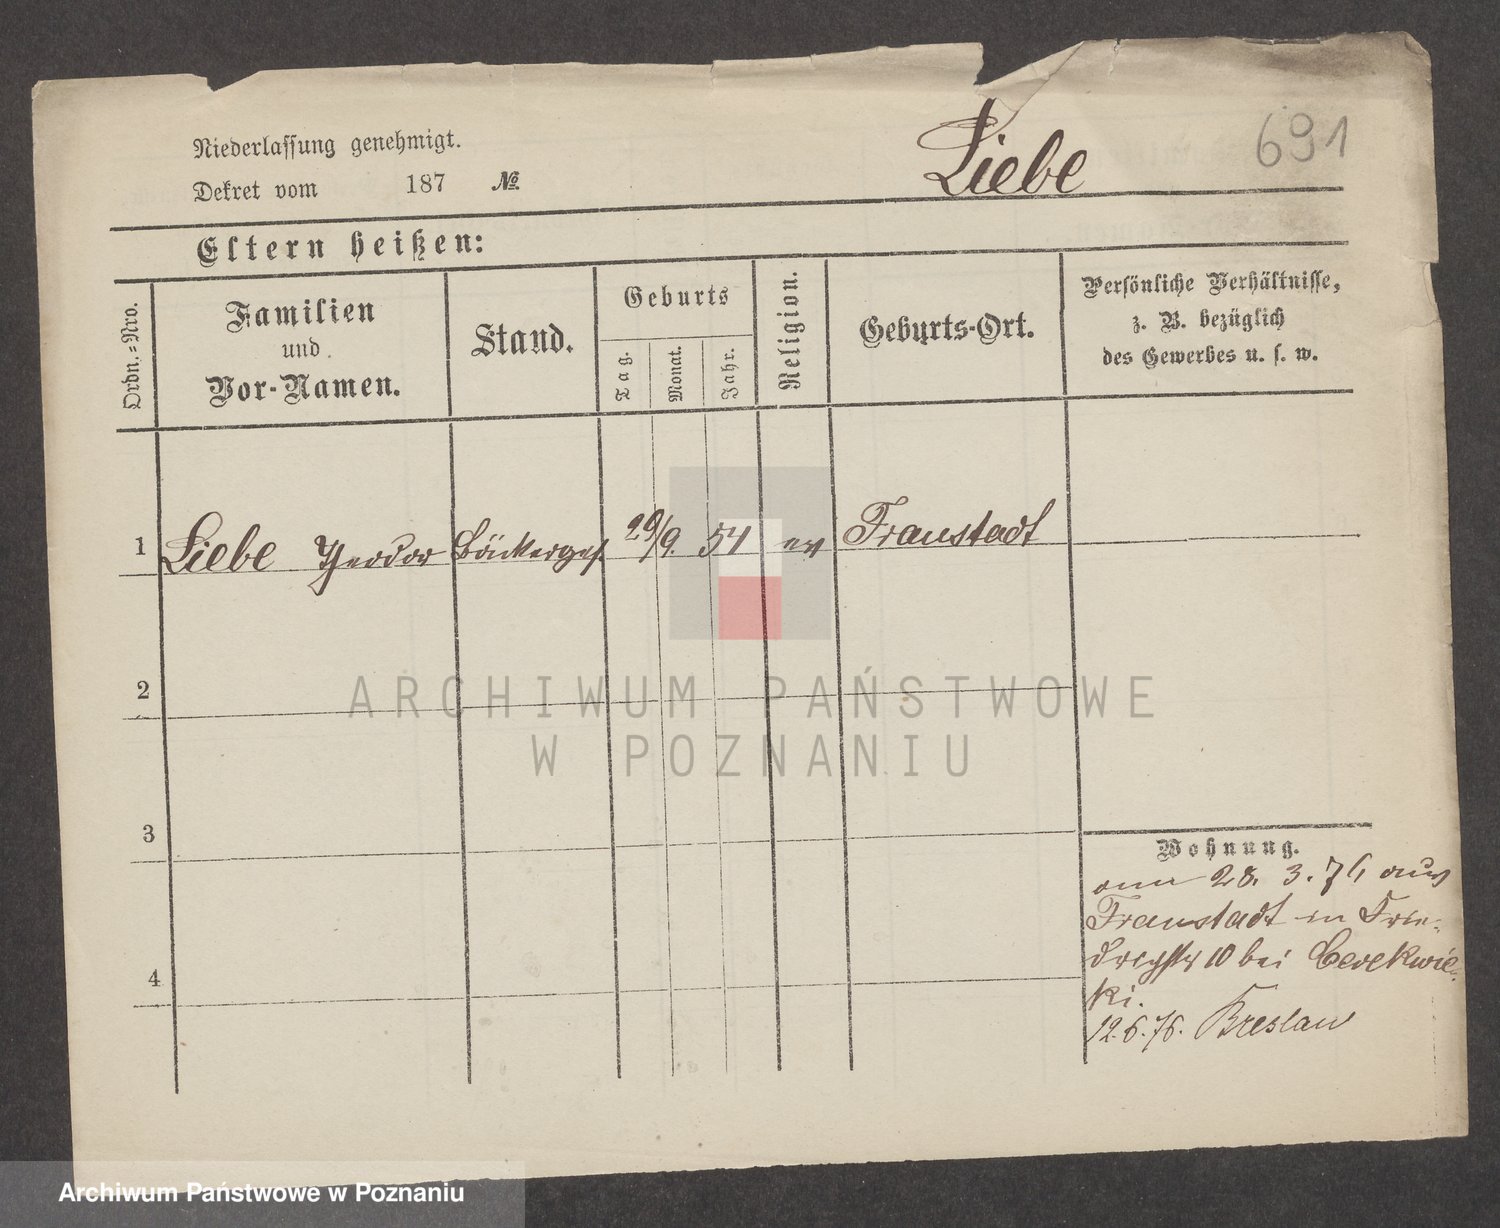 Niederlassung genehmigt.
Dekret vom 187 №
Liebe
691
Eltern heißen:
Ordn.-Nro.
Familien
und
Vor-Namen.
Stand.
Geburts
Tag.
Monat.
Jahr.
Religion.
Geburts-Ort.
Persönliche Verhältnisse,
z. B. bezüglich
des Gewerbes u. s. w.
1 Liebe Theodor Bäckerges. 29/9. 54 ev Fraustadt
2
3
4
Wohnung.
28. 3. 76 aus
Fraustadt in Frie-
drichstr 10 bei Cerekwic-
ki.
12.6.76. Breslau
ARCHIWUM PAŃSTWOWE
W POZNANIU
Archiwum Państwowe w Poznaniu